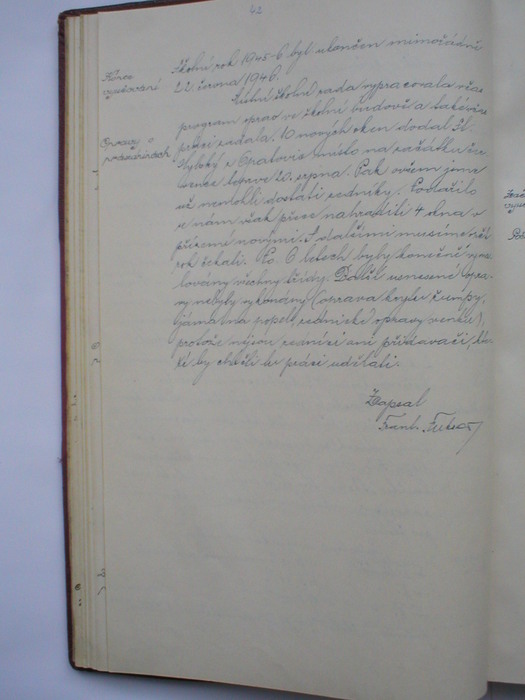 42
Konec
vyučování
Školní rok 1945-6 byl ukončen mimořádně
22. června 1946.
Místní školní rada vypracovala včas
Opravy o
prázdninách
program oprav ve školní budově a také včas
práci zadala. 10 nových oken dodal St.
z Opatovic místo na začátku čer
vence teprve 20. srpna. Pak ovšem jsme
už nemohli dostati zedníky. Podařilo
se nám však přece nahraditi 4 okna v
přízemí novými. S dalšími musíme
rok čekati. Po 6 letech byly konečně vyma
lovány všechny třídy. Další usnesené opra
vy nebyly vykonány (oprava krytu žumpy,
jáma na popel, zednické opravy venku),
protože nejsou zedníci ani přidavači, kte
ré by chtěli tu práci udělati.
Zapsal
Frant.